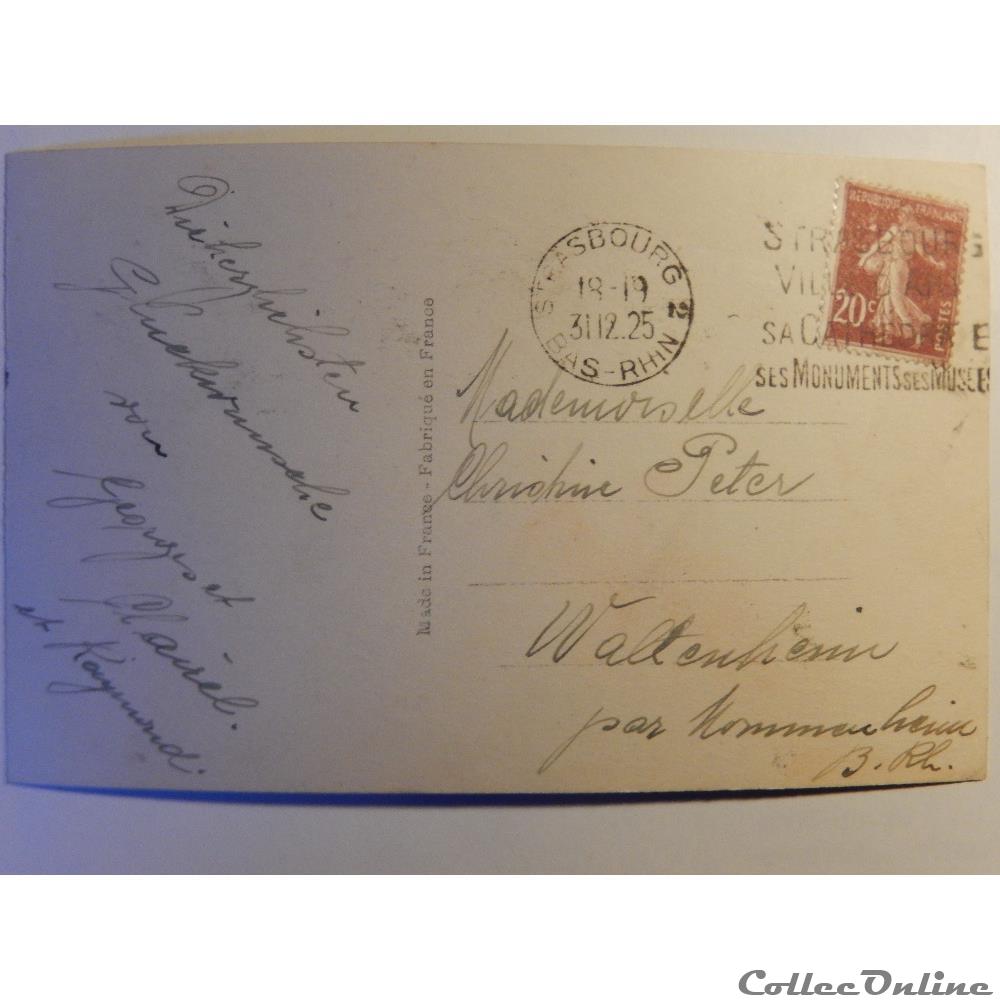 Die herzlichsten
Glückwünsche
von Georges et
Clairel.
et Raymond.
Made in France - Fabriqué en France
STRASBOURG 2
18-19
31 12. 25
BAS-RHIN
REPUBLIQUE FRANÇAISE
20c
POSTES
STRASBOURG
SA CATHEDRALE
SES MONUMENTS SES MUSEES
Mademoiselle
Christine Peter
Waltenheim
par Mommenheim
B. Rh.
CollecOnline